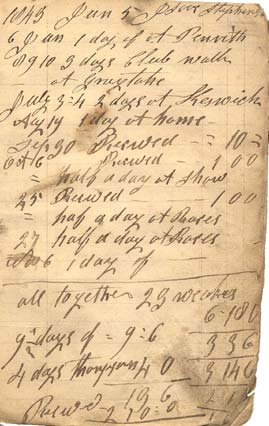 1843 Jan 5 Stephenson
6 Jan 1 day of at Penrith
8 9 10 3 days Club walk
at Graystake
July 3 = 4 2 days at Keswick
Aug 19 1 day at home
Sep 30 Recived = 10 =
Oct 6 Recived - 1 0 0
= half a day at Show
25 Recived 1 0 0
= half a day at Roses
27 half a day at Roses
Nov 6 1 day of
all together 23 weakes
6 = 18 0
9 days of = 9 : 6
3 3 6
4 days thompson 4 0
3 14 6
Recived
2 10 : 0